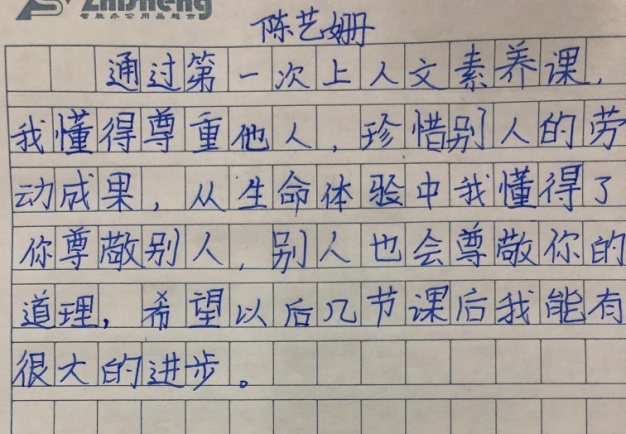 Zhisheng
智胜办公用品超市
陈艺姗
通过第一次上人文素养课，
我懂得尊重他人，珍惜别人的劳
动成果，从生命体验中我懂得了
你尊敬别人，别人也会尊敬你的
道理，希望以后几节课后我能有
很大的进步。